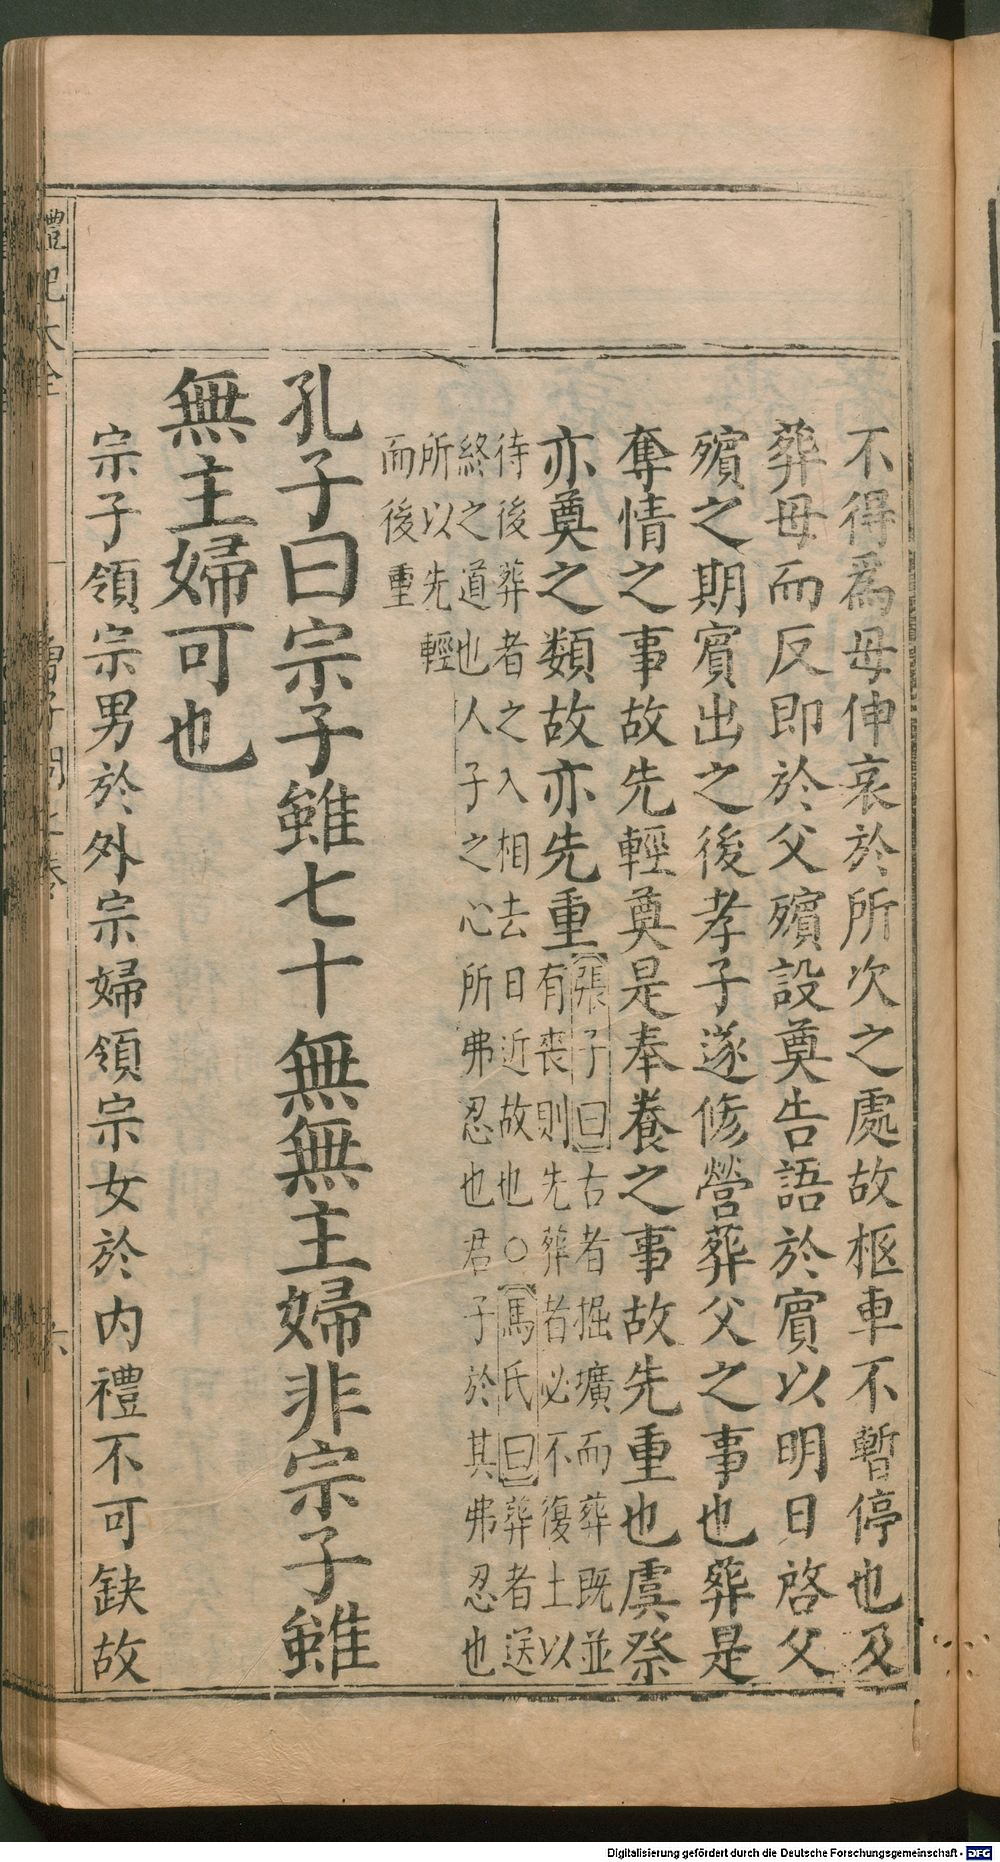 不得為母伸哀於所次之處故柩車不暫停也及
葬母而反即於父殯設奠告語於賓以明日啓父
殯之期賓出之後孝子遂修營葬父之事也葬是
奪情之事故先輕奠是奉養之事故先重也虞祭
亦奠之類故亦先重
張子曰古者掘壙而葬既並
有喪則先葬者必不復土以
待後葬者之入相去日近故也○馬氏曰葬者送
終之道也人子之心所弗忍也君子於其弗忍也
所以先輕
而後重
孔子曰宗子雖七十無無主婦非宗子雖
無主婦可也
宗子領宗男於外宗婦領宗女於內禮不可缺故
禮記大全
曾子問
六
Digitalisierung gefördert durch die Deutsche Forschungsgemeinschaft - DFG